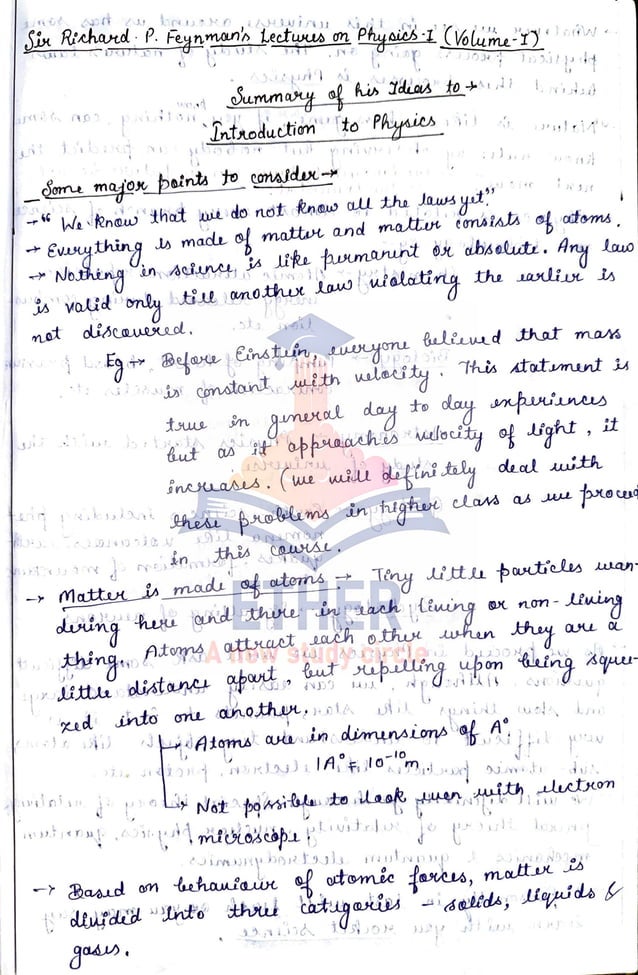 Sir Richard. P. Feynman's Lectures on Physics-I (Volume-I)
Summary of his Ideas to→
Introduction to Physics
Some major points to consider→
→ "We know that we do not know all the laws yet."
→ Everything is made of matter and matter consists of atoms.
→ Nothing in science is like permanent or absolute. Any law
is valid only till another law violating the earlier is
not discovered.
Eg→ Before Einstein, everyone believed that mass
is constant with velocity. This statement is
true in general day to day experiences
but as it approaches velocity of light, it
increases. (we will definitely deal with
these problems in higher class as we proceed
in this course.
→ Matter is made of atoms → Tiny little particles wan-
dering here and there in each living or non-living
thing. Atoms attract each other when they are a
little distance apart, but repelling upon being squee-
zed into one another.
→ Atoms are in dimensions of A°.
1A° = 10⁻¹⁰m
→ Not possible to look even with electron
microscope.
→ Based on behaviour of atomic forces, matter is
divided into three categories - solids, liquids &
gases.
ETHER
A new study circle